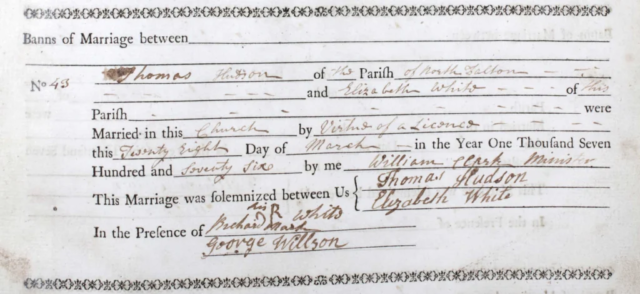 Banns of Marriage between
No 43 Thomas Hudson of the Parish of North Dalton
and Elizabeth White of this
Parish were
Married in this Church by Virtue of a Licence
this Twenty Eight Day of March in the Year One Thousand Seven
Hundred and Seventy Six by me William Clark Minister
This Marriage was solemnized between Us { Thomas Hudson
Elizabeth White
In the Presence of Richard his R mark White
George Willson